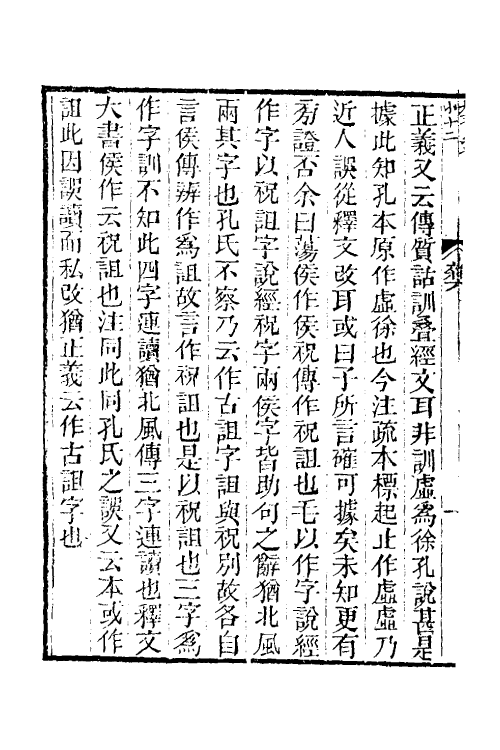 正義又云傳質詁訓疊經文耳非訓虛爲徐孔說甚是
據此知孔本原作虛徐也今注疏本標起止作虛虛乃
近人誤從釋文改耳或曰子所言確可據矣未知更有
旁證否余曰蕩侯作侯祝傳作祝詛也毛以作字說經
作字以祝詛字說經祝字兩侯字皆助句之辭猶北風
兩其字也孔氏不察乃云作古詛字詛與祝別故各自
言侯傳辨作爲詛故言作祝詛也是以祝詛也三字爲
作字訓不知此四字連讀猶北風傳三字連讀也釋文
大書侯作云祝詛也注同此同孔氏之誤又云本或作
詛此因誤讀而私改猶正義云作古詛字也